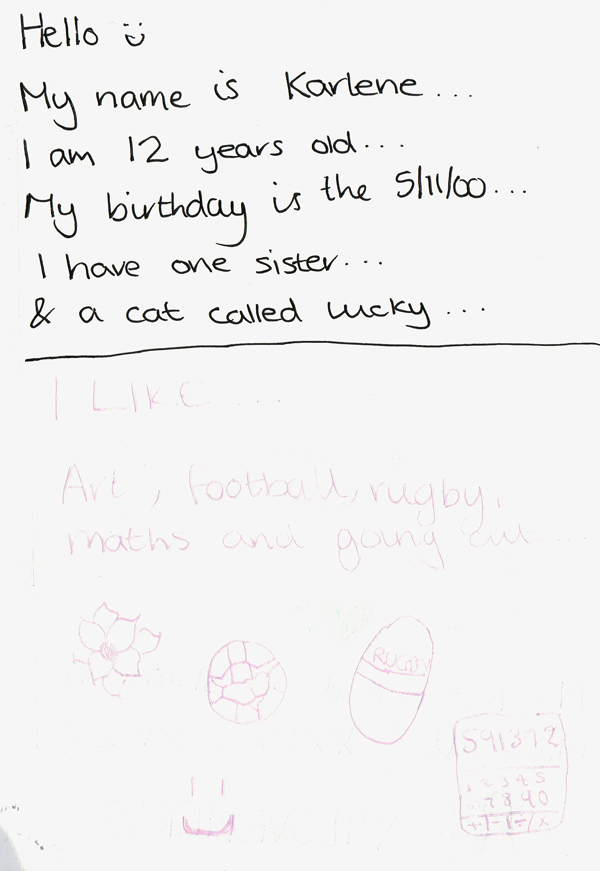 Hello
My name is Karlene...
I am 12 years old...
My birthday is the 5/11/00...
I have one sister...
& a cat called lucky...
I LIKE...
Art, football, rugby,
maths and going out...
RUGBY
591372
1 2 3 4 5
6 7 8 9 0
+ - ÷ x